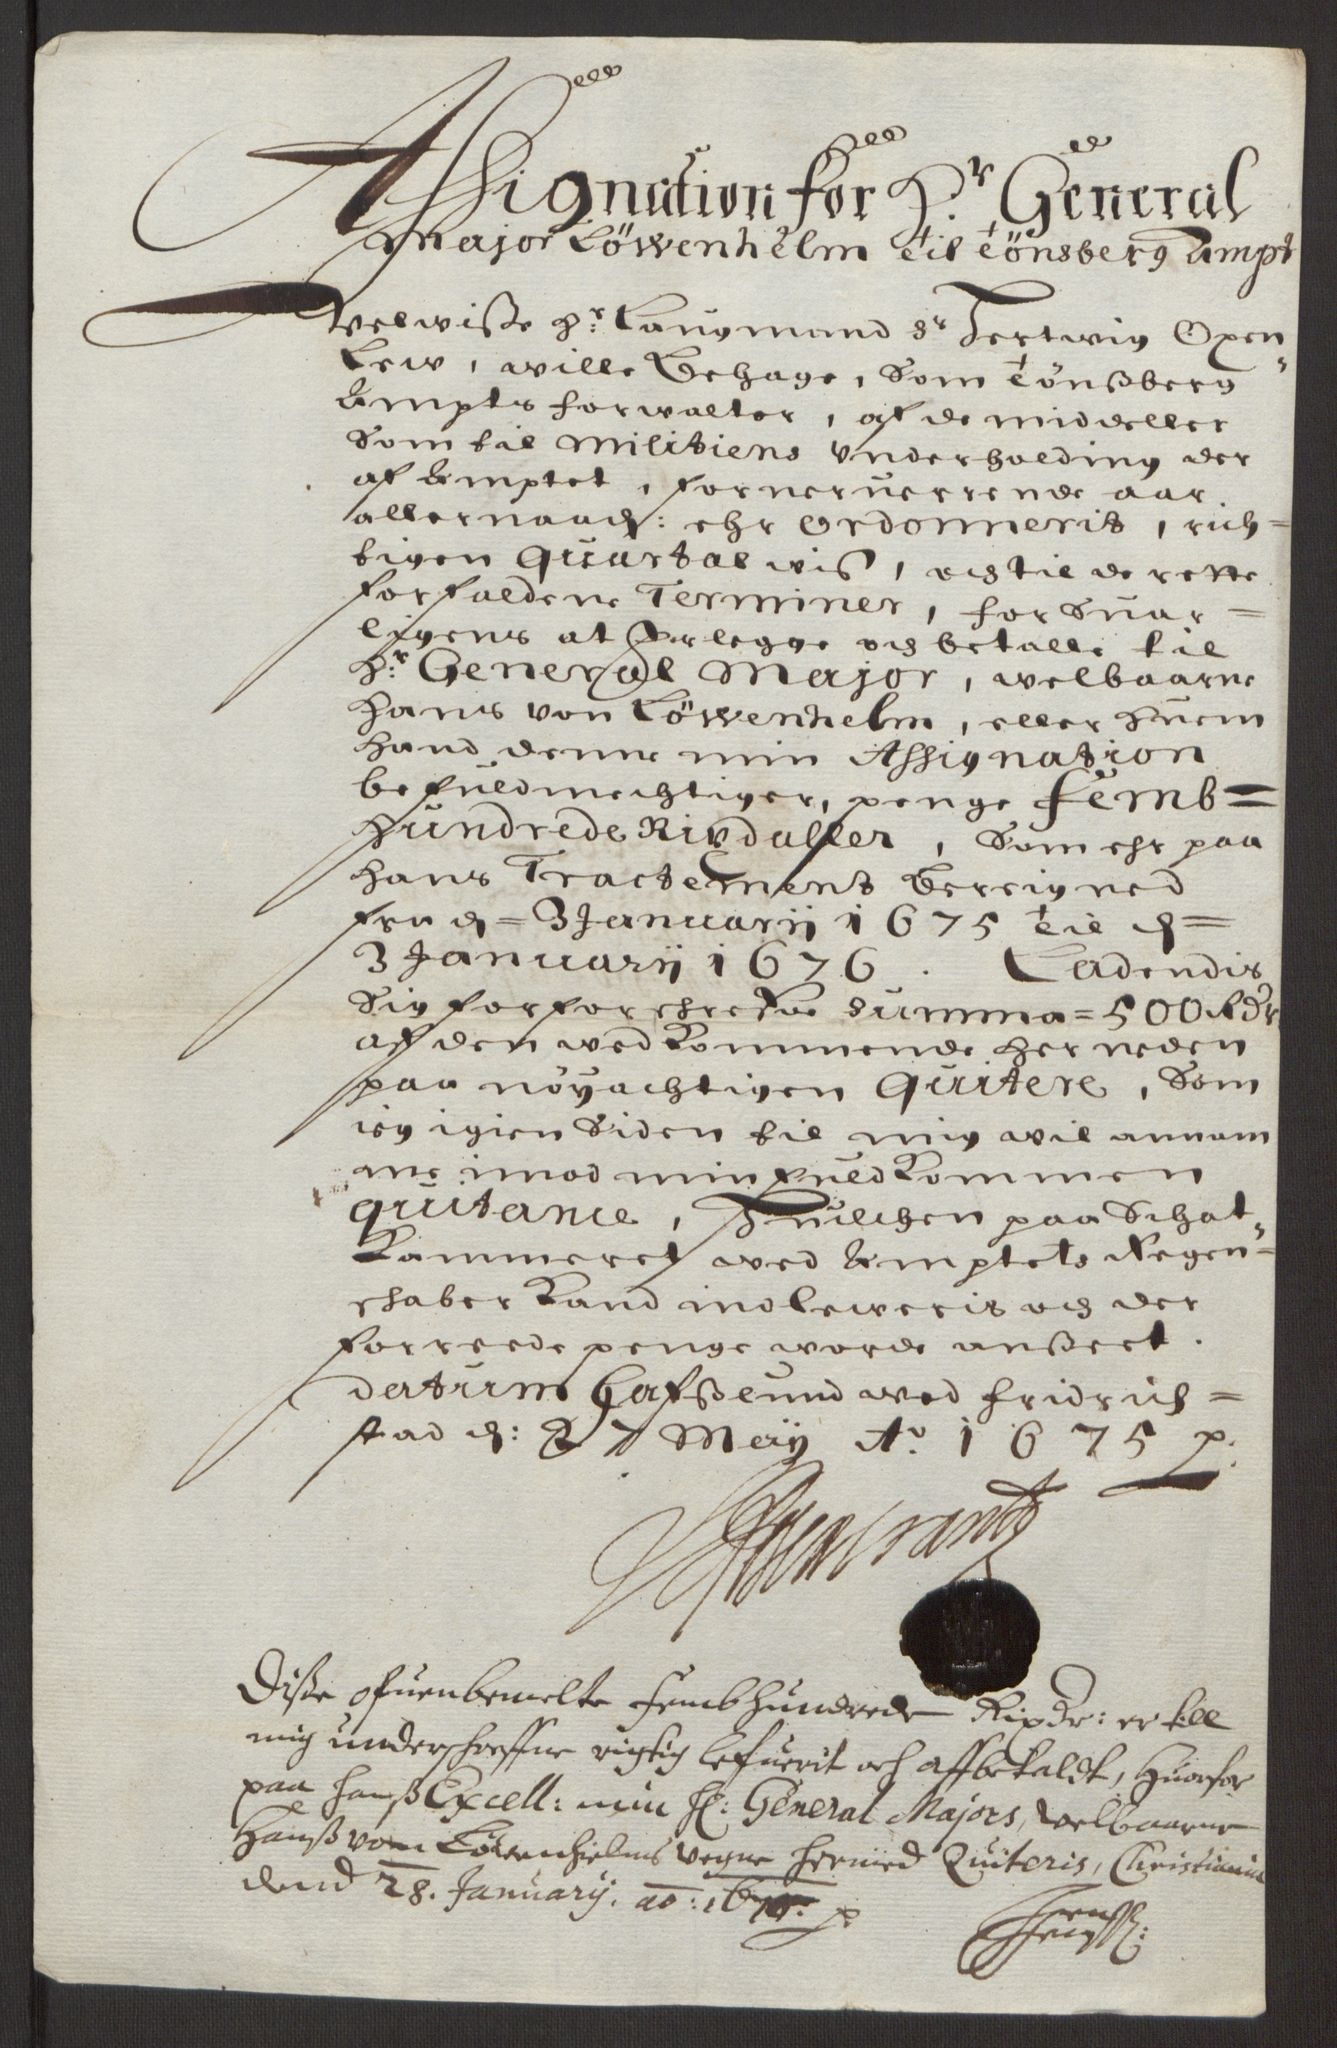 Assignation for H.r General
Major Löwenhelm til Tönsberg Ampt
Velwisse Hr. Laugmand Sr Hertwig Oxen
Lew, wille Behage, Som Tönsberg
Ampts forwalter, af de middeller
Som til Militiens Underholding der
af Amptet, for nerverrende aar
allernaad: ehr Ordonnerit, rich=
tigen Quartal wiss, och til de rette
forfaldene Terminer, for Suar=
ligens at Erlegge och betalle til
Hr. General Major, welbaarne
Hans von Löwenhelm, eller huem
hand denne min Assignation
befuldmechtiger, penge femb=
hundrede Rixdaller, Som ehr paa
hans Tractement Bereigned
fra d= 3 Januarij 1675 til d=
3 Januarij 1676. Ladendis
Sig for forschrefne Summa = 500 Rdr
af den wedkommende her neden
paa nöyachtigen Quitere, Som
ieg igien Siden til mig wil annam
me imod min fuldkommen
quitance, Huilchen paa Schat
Kammeret wed Amptets Regen=
schaber Kand indleweris och der
forreede penge worde ansseet.
datum Hafsslund wed Fridrich=
stad d: 27 Maij Ao 1675 p.
Disse ofuenbemelte fembhundrede Rixdr: er till
mig underschrefne rigtig lefuerit och affbetaldt, Huorfor
paa hanss Excell: min H: General Majors, welbaarne
Hanss von Löwenhielms vegne hermed Quiteris, Christiania
dend 28. January. ao: 1676. p.